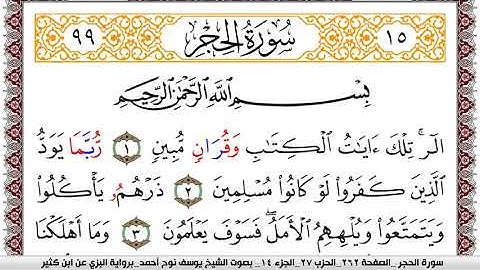 ١٥ سُورَةُ الْحِجْرِ ٩٩
بِسْمِ اللَّهِ الرَّحْمَٰنِ الرَّحِيمِ
الٓر تِلْكَ ءَايَاتُ الْكِتَابِ وَقُرَانٍ مُّبِينٍ ١ رُّبَّمَا يَوَدُّ
الَّذِينَ كَفَرُوا لَوْ كَانُوا مُسْلِمِينَ ٢ ذَرْهُمُ يَأْكُلُوا
وَيَتَمَتَّعُوا وَيُلْهِهِمُ الْأَمَلُ فَسَوْفَ يَعْلَمُونَ ٣ وَمَا أَهْلَكْنَا
سورة الحجر _الصفحة ٢٦٢_الحزب ٢٧_الجزء ١٤_ بصوت الشيخ يوسف نوح أحمد_برواية البزي عن ابن كثير